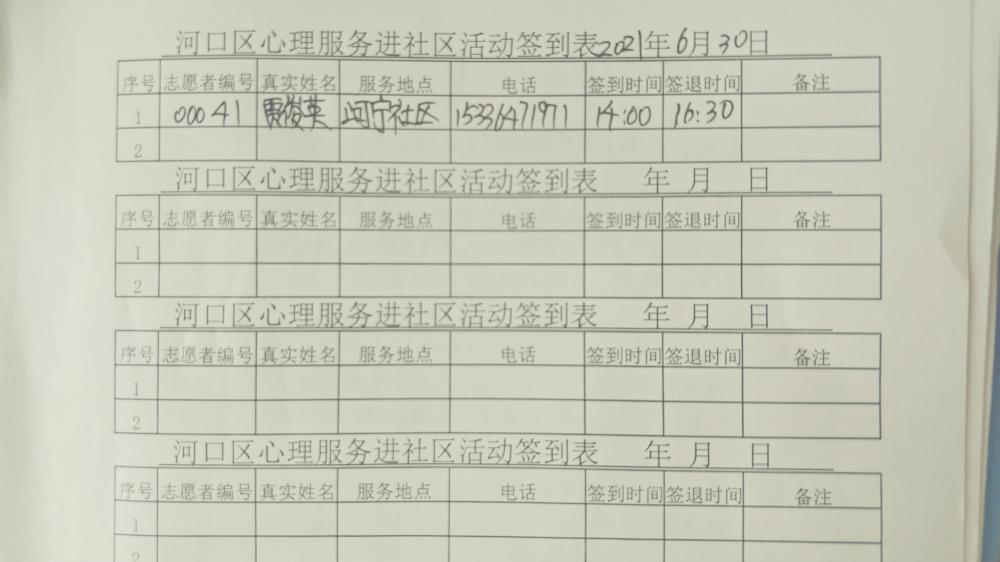 河口区心理服务进社区活动签到表2021年6月30日
序号 志愿者编号 真实姓名 服务地点 电话 签到时间 签退时间 备注
1 00041 贾俊英 河宁社区 15336471971 14:00 16:30
2
河口区心理服务进社区活动签到表 年 月 日
序号 志愿者编号 真实姓名 服务地点 电话 签到时间 签退时间 备注
1
2
河口区心理服务进社区活动签到表 年 月 日
序号 志愿者编号 真实姓名 服务地点 电话 签到时间 签退时间 备注
1
2
河口区心理服务进社区活动签到表 年 月 日
序号 志愿者编号 真实姓名 服务地点 电话 签到时间 签退时间 备注
1
2